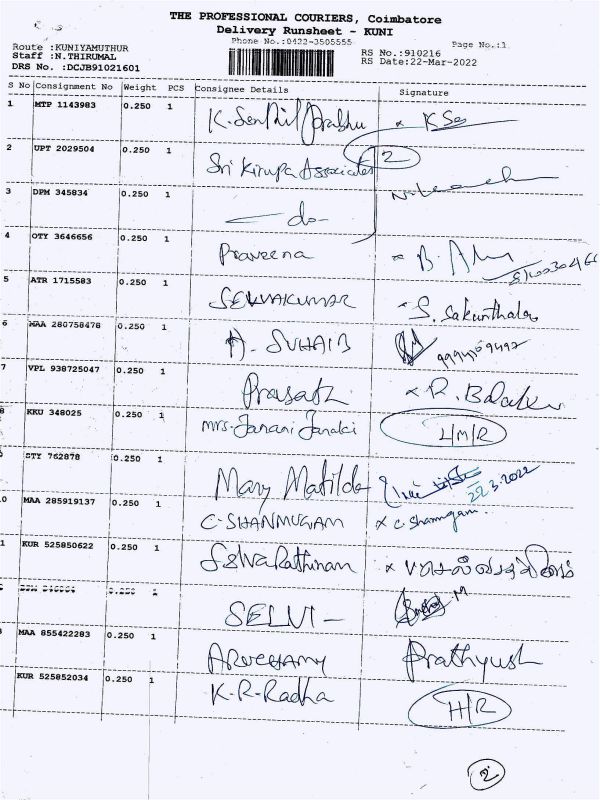 THE PROFESSIONAL COURIERS, Coimbatore
Delivery Runsheet - KUNI
Phone No.:0422-3505555
Page No.:1
Route :KUNIYAMUTHUR
Staff :N.THIRUMAL
DRS No. :DCJB91021601
RS No.:910216
RS Date:22-Mar-2022
S No Consignment No Weight PCS Consignee Details Signature
1 MTP 1143983 0.250 1 K. Senthil Prabhu x
2 UPT 2029504 0.250 1 Sri Kirupa Associates 2
3 DPM 345834 0.250 1 - do -
4 OTY 3646656 0.250 1 Praveena
5 ATR 1715583 0.250 1 SELVAKUMAR S. Sakunthala
6 MAA 280758478 0.250 1 A. SUHAIB
7 VPL 938725047 0.250 1 Prasath x R.
8 KKU 348025 0.250 1 Mrs. Janani Janaki L/M/R
STY 762878 0.250 1 Mary Matilda 22.3.2022
0 MAA 285919137 0.250 1 C. SHANMUGAM x C. Shanmugam
1 KUR 525850622 0.250 1 SelvaRathinam x
0.250 1 SELVI -
MAA 855422283 0.250 1 Prathyush
KUR 525852034 0.250 1 K-R-Radha H/R
2